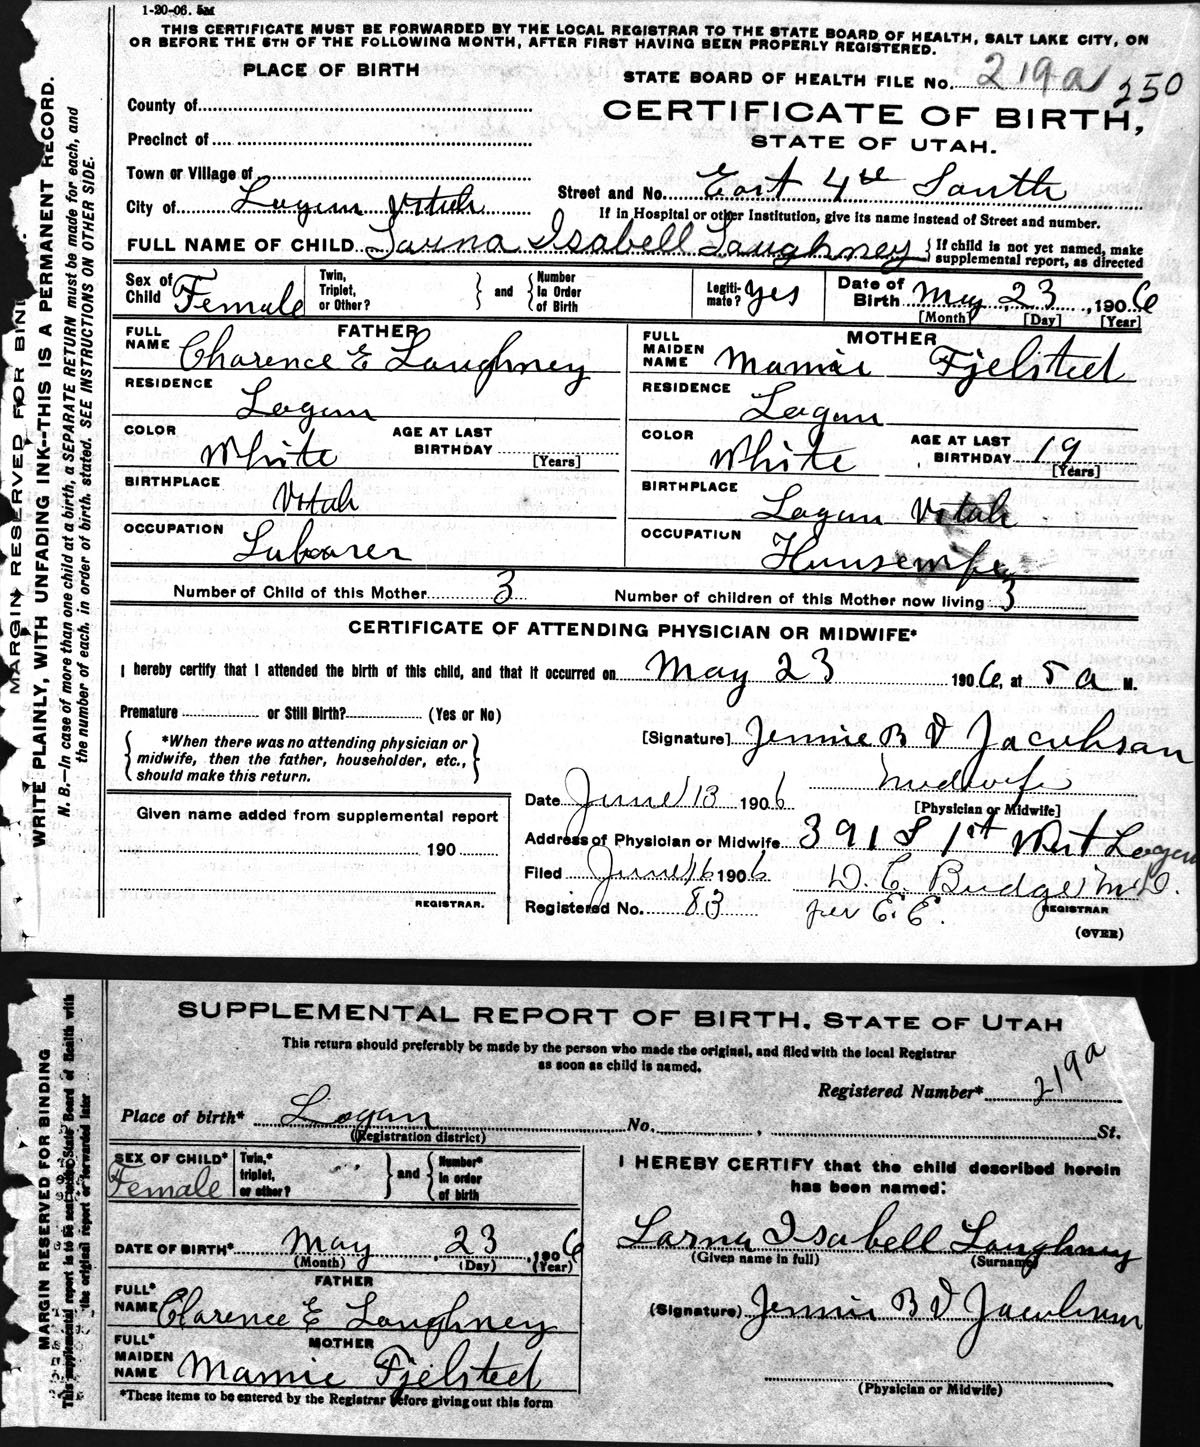 1-20-06. 5M
THIS CERTIFICATE MUST BE FORWARDED BY THE LOCAL REGISTRAR TO THE STATE BOARD OF HEALTH, SALT LAKE CITY, ON
OR BEFORE THE 5TH OF THE FOLLOWING MONTH, AFTER FIRST HAVING BEEN PROPERLY REGISTERED.
PLACE OF BIRTH
STATE BOARD OF HEALTH FILE NO. 219a 250
County of
CERTIFICATE OF BIRTH,
Precinct of
STATE OF UTAH.
Town or Village of
Street and No. East 4th South
City of Logan Utah
If in Hospital or other Institution, give its name instead of Street and number.
FULL NAME OF CHILD Larna Isabell Laughney } If child is not yet named, make
supplemental report, as directed
Sex of Child Female
Twin, Triplet, or Other? } and { Number In Order of Birth
Legiti-mate? Yes
Date of Birth May 23, 1906
[Month] [Day] [Year]
FATHER
FULL NAME Charence E Laughney
MOTHER
FULL MAIDEN NAME Mamie Fjelsted
RESIDENCE Logan
RESIDENCE Logan
COLOR White AGE AT LAST BIRTHDAY [Years]
COLOR White AGE AT LAST BIRTHDAY 19 [Years]
BIRTHPLACE Utah
BIRTHPLACE Logan Utah
OCCUPATION Laborer
OCCUPATION Housewife
Number of Child of this Mother 3 Number of children of this Mother now living 3
CERTIFICATE OF ATTENDING PHYSICIAN OR MIDWIFE*
I hereby certify that I attended the birth of this child, and that it occurred on May 23 1906, at 5 a M.
Premature or Still Birth? (Yes or No)
{ *When there was no attending physician or
midwife, then the father, householder, etc.,
should make this return. }
[Signature] Jennie B D Jacobson
Midwife
[Physician or Midwife]
Date June 13 1906
Given name added from supplemental report
190
REGISTRAR.
Address of Physician or Midwife 391 S 1st West Logan
Filed June 16 1906 D. C. Budge M.D.
Registered No. 83 per E. E. REGISTRAR
(OVER)
MARGIN RESERVED FOR BIND
WRITE PLAINLY, WITH UNFADING INK--THIS IS A PERMANENT RECORD.
N. B.—In case of more than one child at a birth, a SEPARATE RETURN must be made for each, and
the number of each, in order of birth, stated. SEE INSTRUCTIONS ON OTHER SIDE.
SUPPLEMENTAL REPORT OF BIRTH. STATE OF UTAH
This return should preferably be made by the person who made the original, and filed with the local Registrar
as soon as child is named.
Registered Number* 219a
Place of birth* Logan No. , St.
(Registration district)
SEX OF CHILD* Female
Twin,* triplet, or other? } and { Number* in order of birth
I HEREBY CERTIFY that the child described herein
has been named:
DATE OF BIRTH* May 23, 1906
(Month) (Day) (Year)
Larna Isabell Laughney
(Given name in full) (Surname)
FATHER
FULL* NAME Clarence E Laughney
(Signature) Jennie B D Jacobson
MOTHER
FULL* MAIDEN NAME Mamie Fjelsted
(Physician or Midwife)
*These items to be entered by the Registrar before giving out this form
MARGIN RESERVED FOR BINDING
This supplemental report is to be sent to the State Board of Health with
the original report or forwarded later